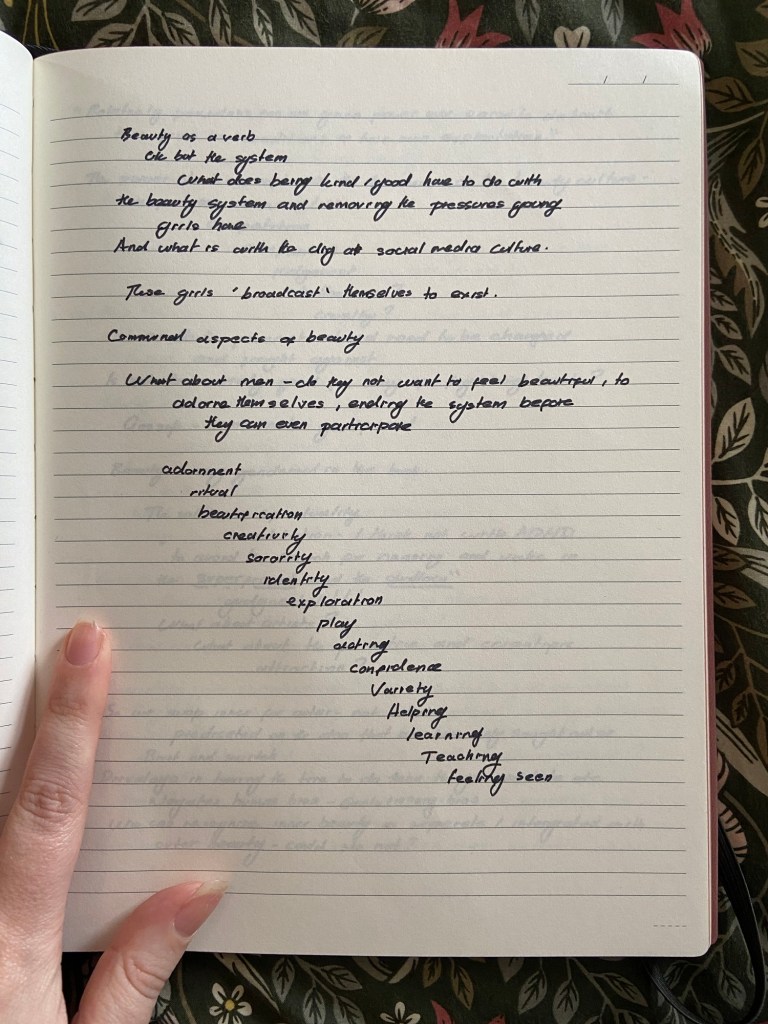 Beauty as a verb
Ok but the system
What does being kind / good have to do with
the beauty system and removing the pressures young
girls have
And what is with the dig at social media culture.
These girls 'broadcast' themselves to exist.
Communal aspects of beauty
What about men - do they not want to feel beautiful, to
adorne themselves, ending the system before
they can even participate
adornment
ritual
beautification
creativity
sorority
identity
exploration
play
acting
confidence
Variety
Helping
learning
Teaching
feeling seen